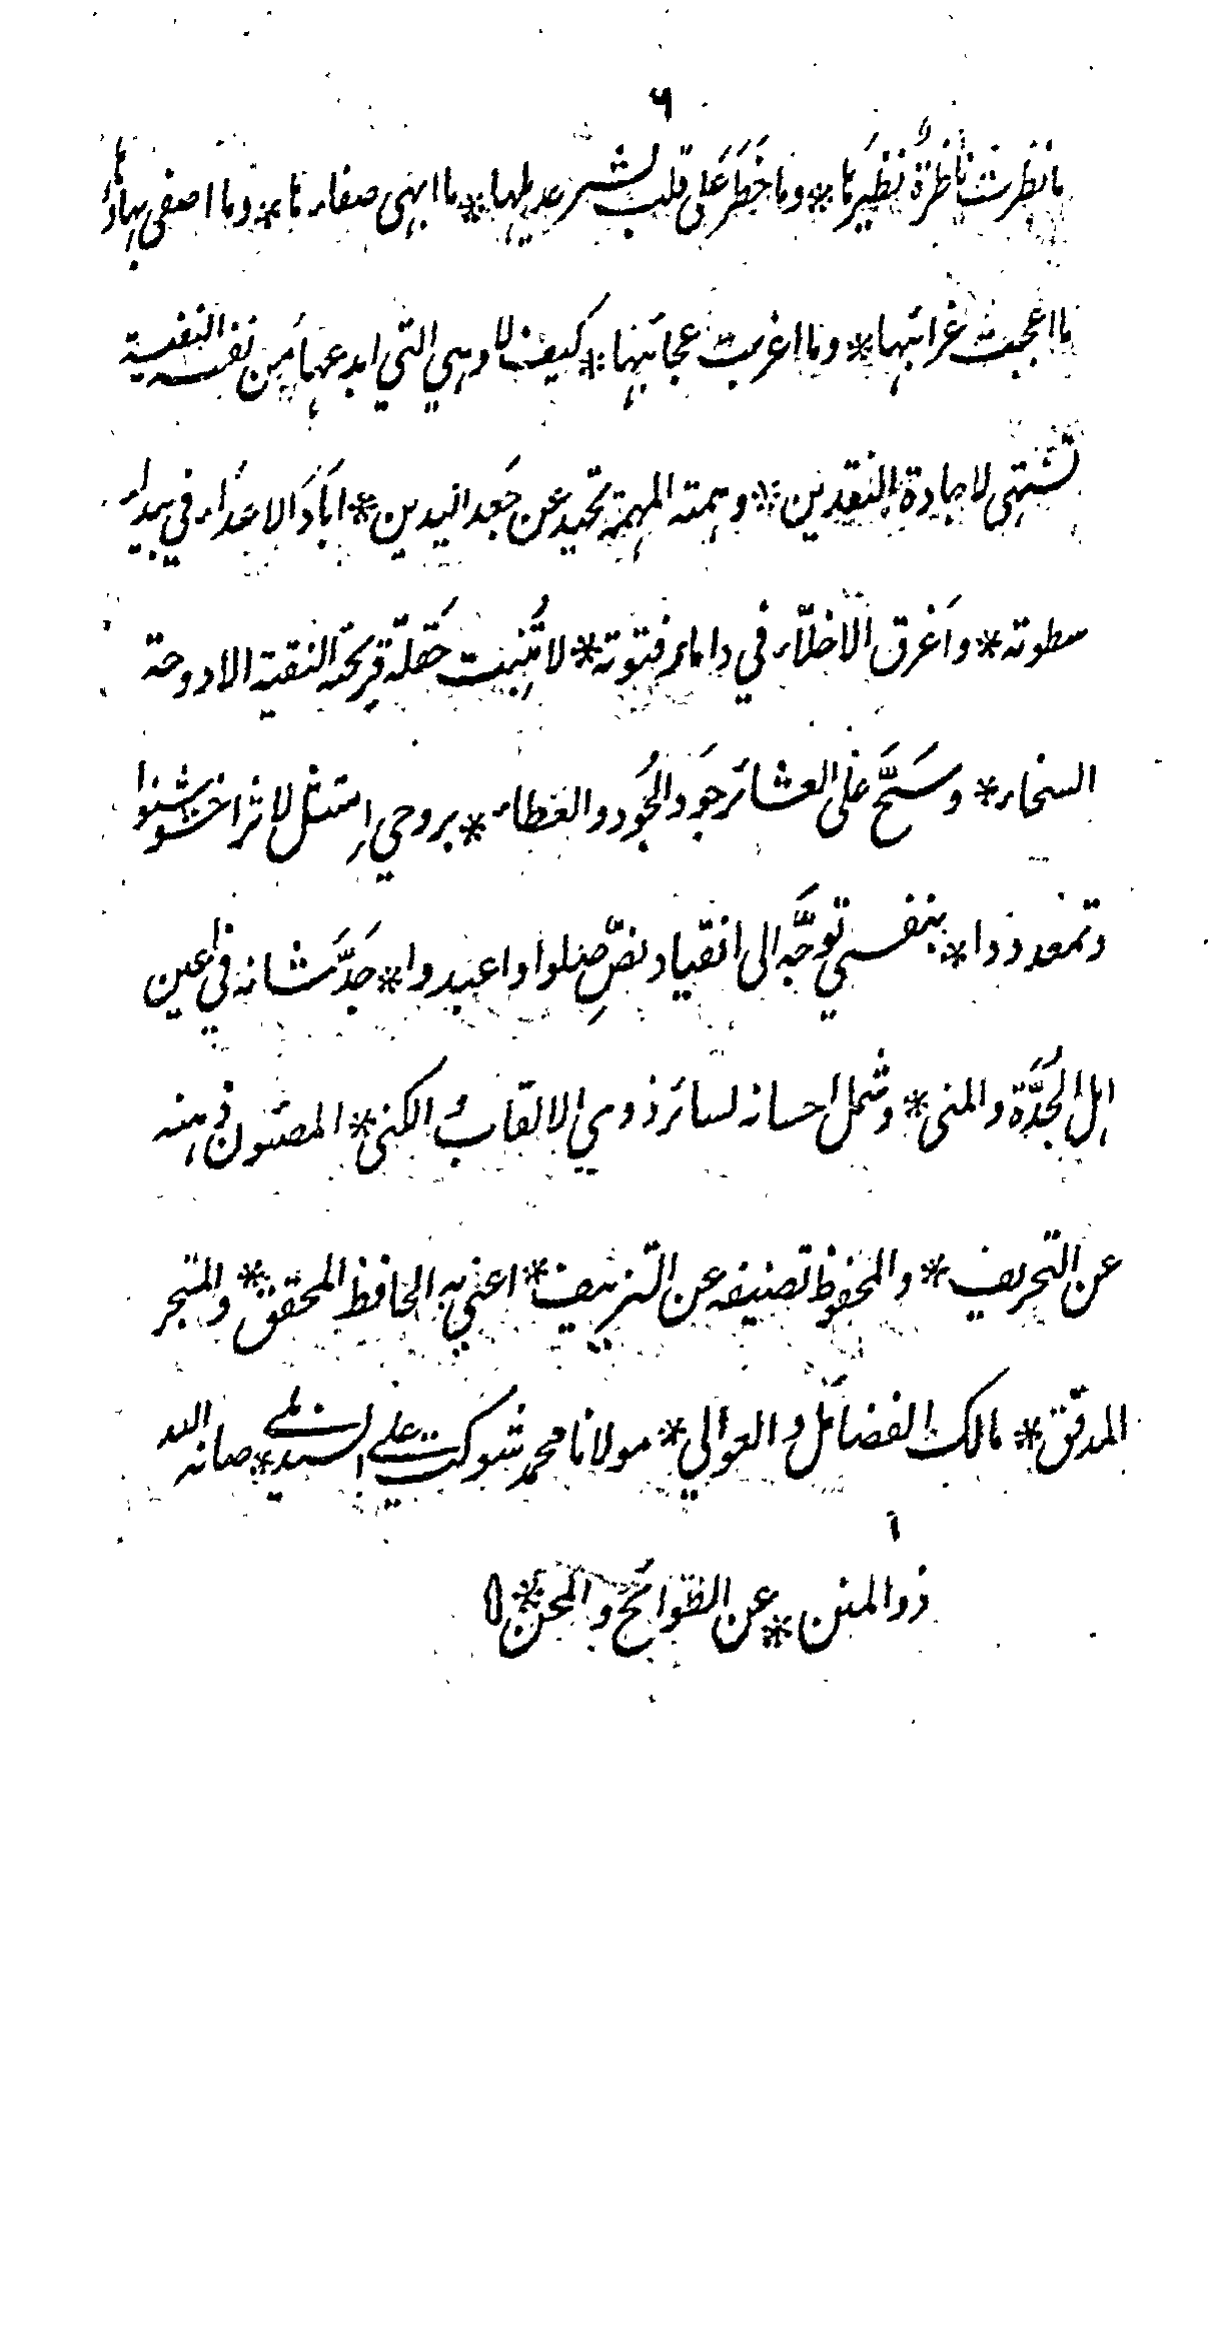 ٦
ما نظرت ناظرة نظيرها * وما خَطَرَ عَلى قلب بشر عديلها * ما ابهى صفاءها * وما اصفى بهاءها
ما اعجبت غرائبها * وما اغربت عجائبها * كيف لا وهي التي ابدعها من نفسه النفيسة
تشتهي لاجادة النقدين * وهمته المهمة تحيد عن جَعد اليدين * ابَادَ الاعدَاء في بيداء
سطوته * واَغرق الاخلّاء في داماء فتوته * لا تُنبِت حَقلة قريحته النقية الا دوحة
السخاء * وسَحَّ عَلى العشائر جَودَ الجُود والعَطاء * بروحي اِمتثل لاثر اخشوشنوا
وتمعددوا * بنفسي توجَّه الى انقياد نصِّ صلوا واعبدوا * جَدَّ شانه في اعين
اهل الجُدَّة والمنى * وشمل احسانه لسائر ذوي الالقاب والكنى * المصئون ذهنه
عن التحريف * والمحفوظ تصنيفه عن التزييف * اعني به الحافظ المحقق * والمتبحر
المدقّق * مالك الفضائل والعوالي * مولانا محمد شوكت علي السنديلي * صانه الله
ذو المنن * عن الطوائح والمحن *